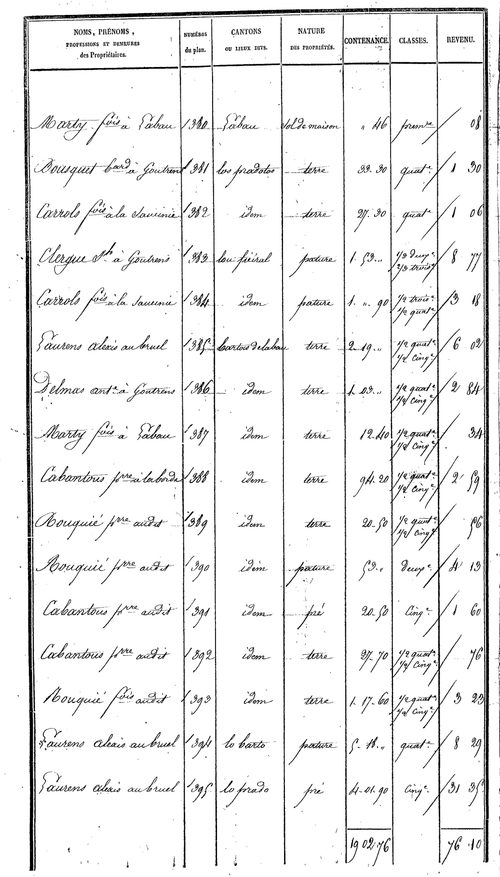 NOMS, PRÉNOMS, PROFESSIONS ET DEMEURES des Propriétaires. NUMÉROS du plan. CANTONS OU LIEUX DITS. NATURE DES PROPRIÉTÉS. CONTENANCE. CLASSES. REVENU.
Marty fois à Labau 1380 Labau sol de maison " 46 premre / 08
Bousquet bard à Goutrens 1381 los pradotos terre 33.30 quat.e 1 30
Carrols fois à la Sauvinie 1382 idem terre 27.30 quat.e 1 06
Clergue à Goutrens 1383 lou fieiral pature 1. 53. " 1/3 deux.e 2/3 trois.e 8 77
Carrols fois à la Sauvinie 1384 idem pature 1. " 90 1/2 trois.e 1/2 quat.e 3 18
Laurens alexis au bruel 1385 bartos de labau terre 2. 19. " 1/2 quat.e 1/2 cinq.e 6 02
Delmas ant.e à Goutrens 1386 idem terre 1. 03. " 1/2 quat.e 1/2 cinq.e 2 84
Marty fois à Labau 1387 idem terre 12.40 1/2 quat.e 1/2 cinq.e / 34
Cabantous prre à laborde 1388 idem terre 94.20 1/2 quat.e 1/2 cinq.e 2 59
Rouquié prre audit 1389 idem terre 20.50 1/2 quat.e 1/2 cinq.e / 56
Rouquié prre audit 1390 idem pature 53. " deux.e 4 13
Cabantous prre audit 1391 idem pré 20.50 cinq.e 1 60
Cabantous prre audit 1392 idem terre 27.70 1/2 quat.e 1/2 cinq.e / 76
Rouquié fois audit 1393 idem terre 1. 17. 60 1/2 quat.e 1/2 cinq.e 3 23
Laurens alexis au bruel 1394 lo barto pature 5. 18. " quat.e 8 29
Laurens alexis au bruel 1395 lo prado pré 4. 01. 90 cinq.e 31 35
19 02.76 76.10